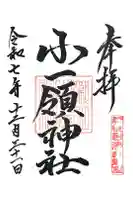 奉拝
小一領神社
令和七年十二月二十一日